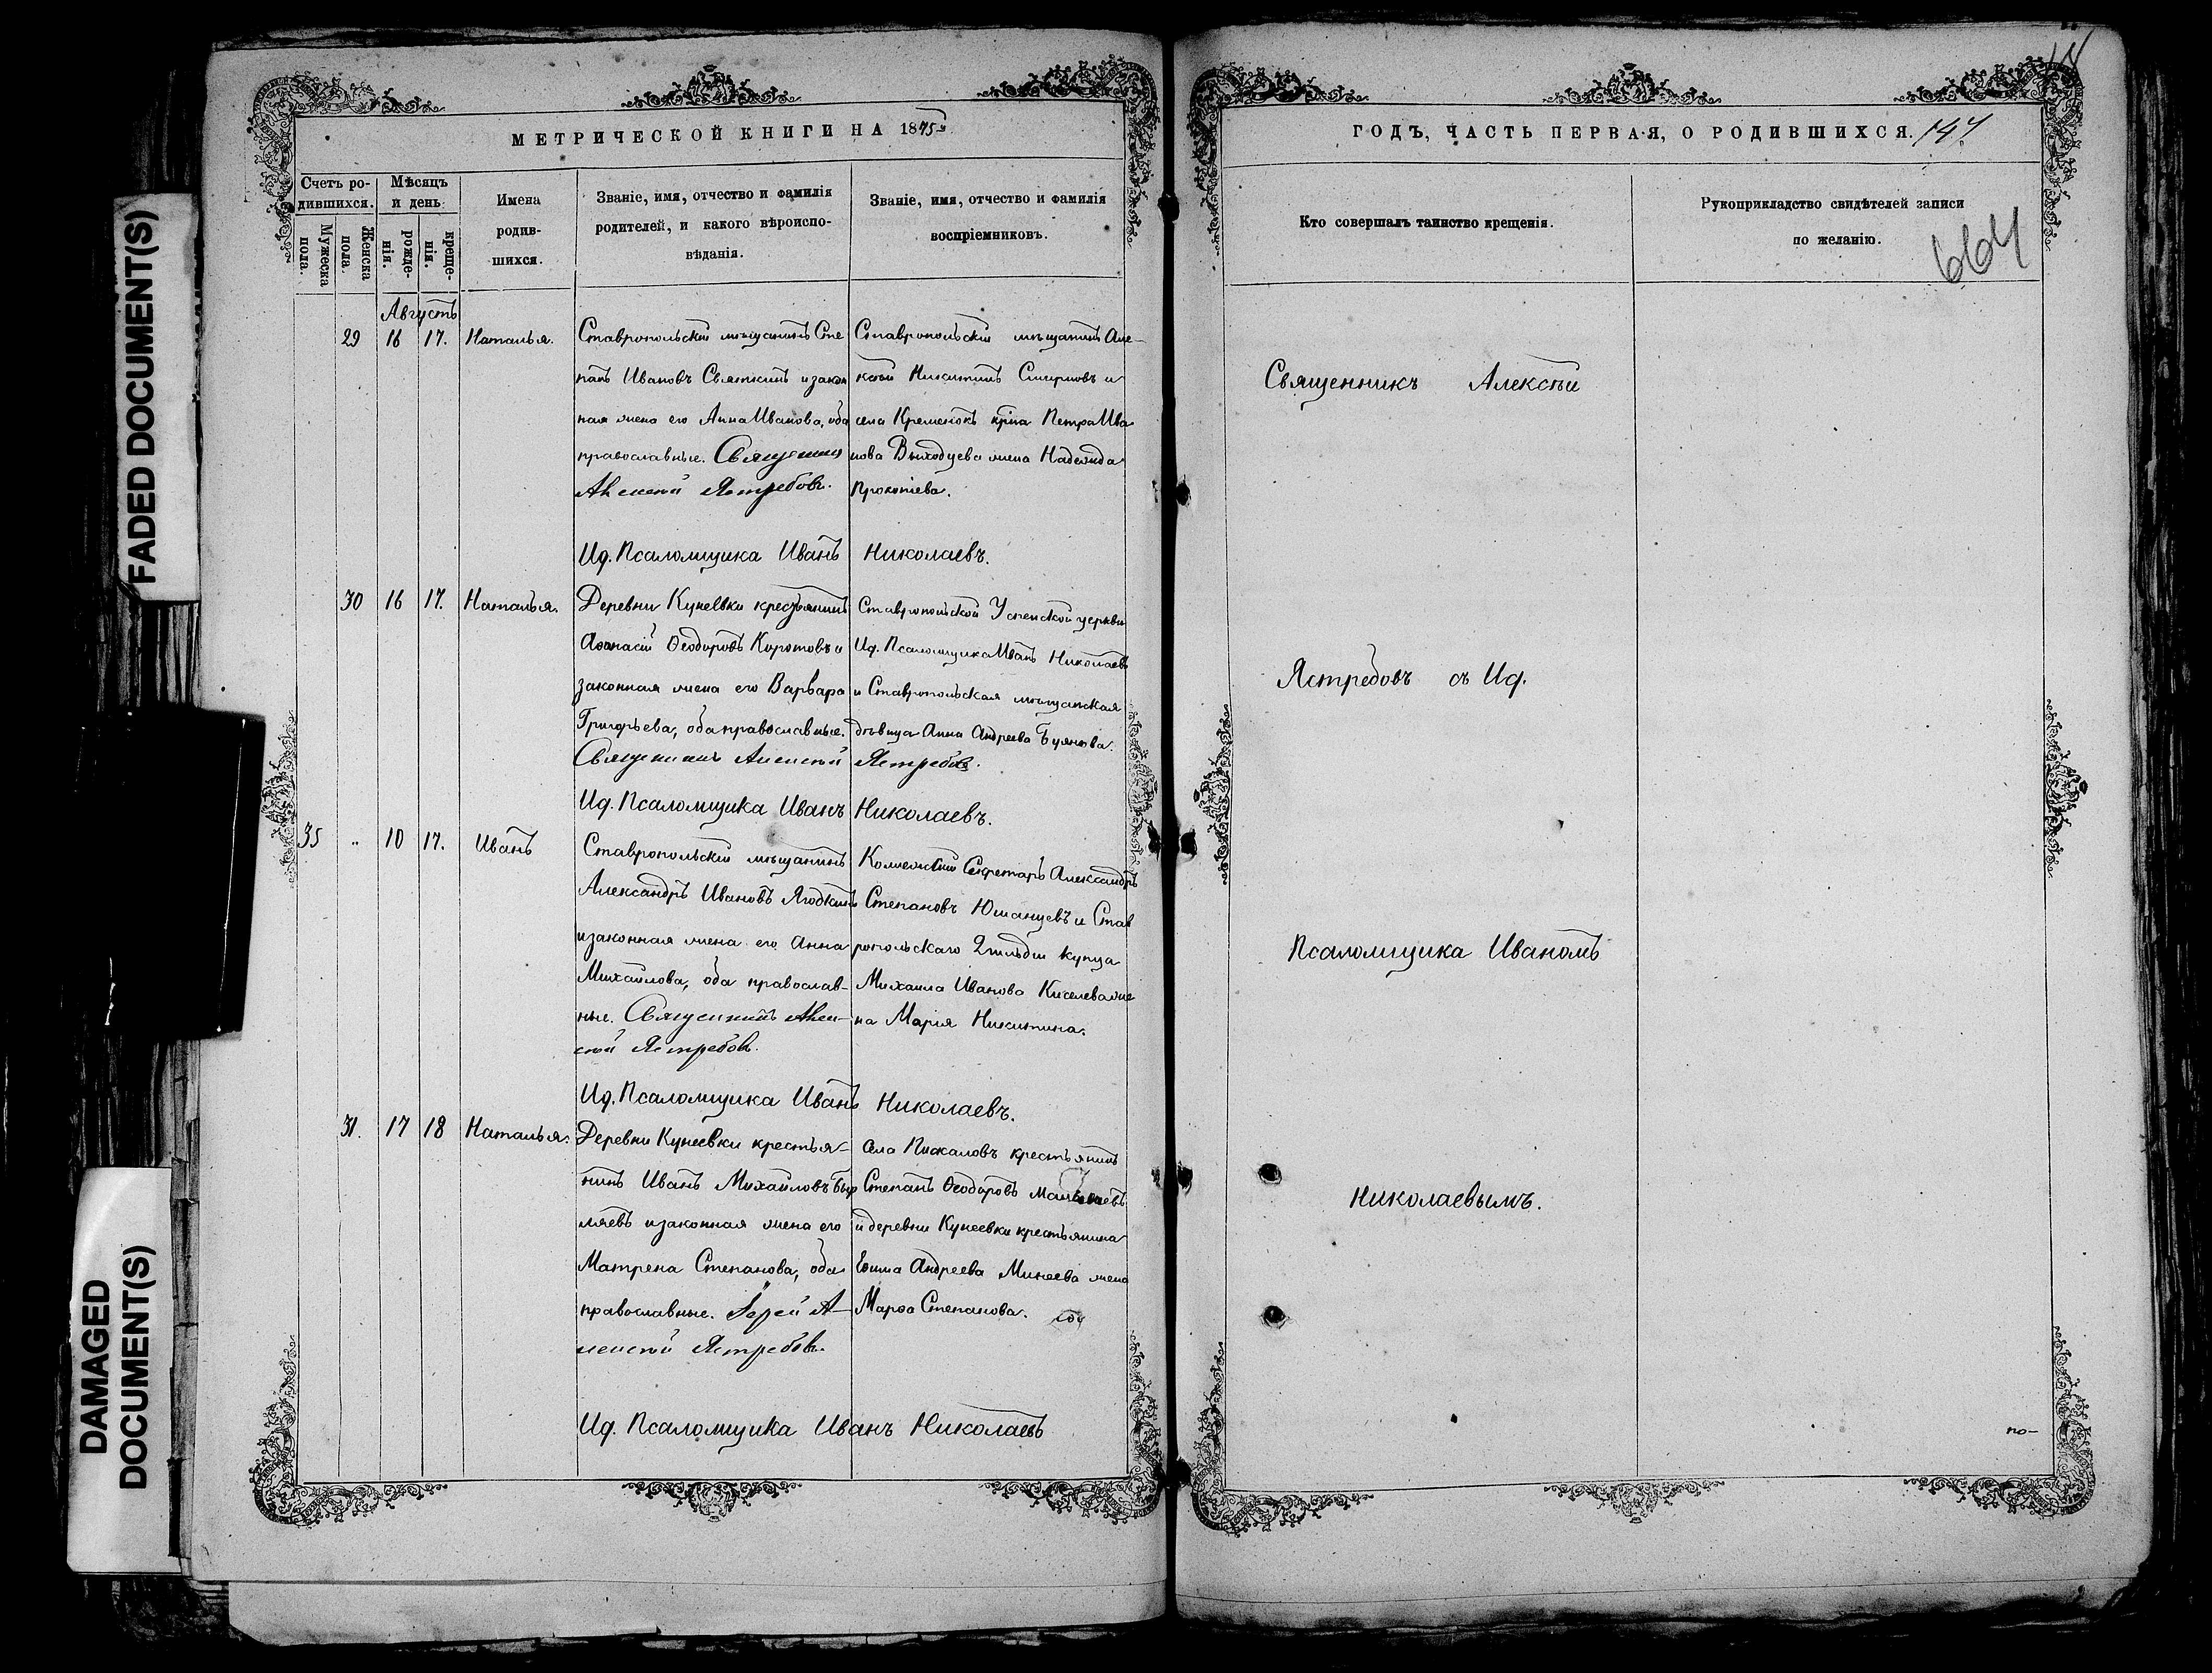 FADED DOCUMENT(S)
DAMAGED
DOCUMENT(S)
МЕТРИЧЕСКОЙ КНИГИ НА 1875
Счетъ ро-
дившихся.
Мужеска
пола.
Женска
пола.
Мѣсяцъ
и день
рожде-
нія.
креще-
нія.
Имена
родив-
шихся.
Званіе, имя, отчество и фамилія
родителей, и какого вѣроиспо-
вѣданія.
Званіе, имя, отчество и фамилія
воспріемниковъ.
Августъ
29 16 17. Наталья.
Ставропольскій мѣщанинъ Сте
панъ Ивановъ Святкинъ и закон
ная жена его Анна Иванова, оба
православные. Священникъ
Алексѣй Ястребовъ.
Ставропольскій мѣщанинъ Але-
ксѣй Никитинъ Смирновъ и
села Кременокъ кр-на Петра Ива
нова Выходцева жена Надежда
Прокопіева.
Ид. Псаломщика Иванъ Николаевъ.
30 16 17. Наталья.
Деревни Кунеевки крестьянинъ
Аѳанасій Ѳеодоровъ Коротовъ и
законная жена его Варвара
Григорьева, оба православные.
Священникъ Алексѣй Ястребовъ.
Ставропольской Успенской церкви
Ид. Псаломщика Иванъ Николаевъ
и Ставропольская мѣщанская
дѣвица Анна Андреева Буянова.
Ид. Псаломщика Иванъ Николаевъ.
35 " 10 17. Иванъ
Ставропольскій мѣщанинъ
Александръ Ивановъ Ягодкинъ
и законная жена его Анна
Михайлова, оба православ-
ные. Священникъ Алек-
сѣй Ястребовъ.
Коллежскій Секретарь Александръ
Степановъ Юшанцевъ и Став
ропольскаго 2 гильдіи купца
Михаила Иванова Киселева же
на Марія Никитина.
Ид. Псаломщика Иванъ Николаевъ.
31. 17 18 Наталья.
Деревни Кунеевки крестья-
нинъ Иванъ Михайловъ Бур
мяевъ и законная жена его
Матрена Степанова, оба
православные. Іерей А-
лексѣй Ястребовъ.
села Пискаловъ крестьянинъ
Степанъ Ѳеодоровъ
и деревни Кунеевки крестьянина
Евѳима Андреева Минеева жена
Марѳа Степанова.
Ид. Псаломщика Иванъ Николаевъ
ГОДЪ, ЧАСТЬ ПЕРВАЯ, О РОДИВШИХСЯ. 147
Кто совершалъ таинство крещенія.
Рукоприкладство свидѣтелей записи
по желанію.
664
Священникъ Алексѣй
Ястребовъ съ Ид.
Псаломщика Иваномъ
Николаевымъ.
по-